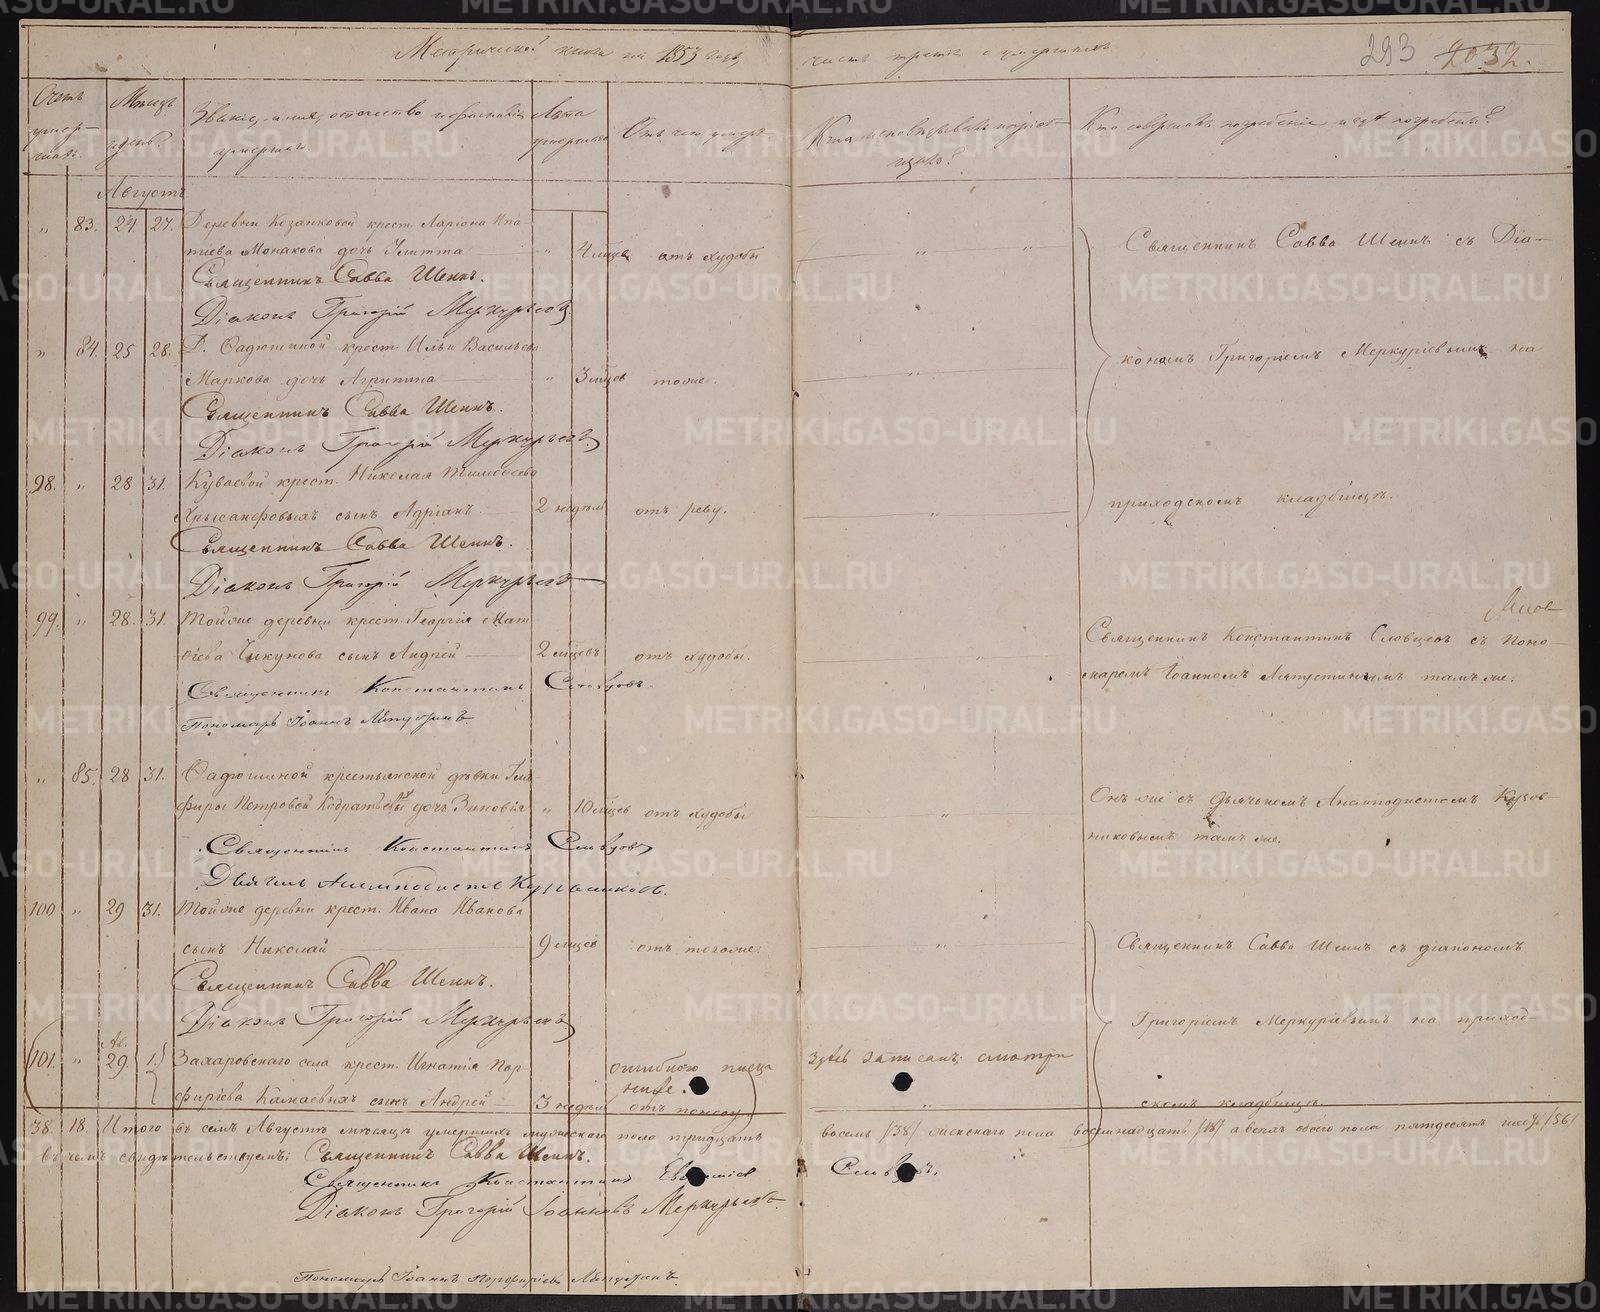 Метрической книги на 1853 годъ, часть третія о умершихъ
293 2032.
Счетъ умершихъ.
Мѣсяцъ и день.
Званіе, имя, отчество и фамилія умершихъ.
Лѣта умершаго
Отъ чего умеръ
Кто исповѣдывалъ и пріобщалъ?
Кто совершалъ погребеніе и гдѣ погребены?
Августъ
" 83. 24. 27. Деревни Казанковой крест. Ларіона Ипа-
тіева Монакова дочь Улитта " 4 мѣсц. отъ худобы " Священникъ Савва Шеинъ съ Діа-
Священникъ Савва Шеинъ.
Діаконъ Григорій Меркурьевъ
" 84. 25 28. Д. Садюшиной крест. Ильи Васильева
кономъ Григоріемъ Меркуріевымъ на
Маркова дочь Агрипина " 3 мѣсцев тоже. "
Священникъ Савва Шеинъ.
Діаконъ Григорій Меркурьевъ
98. " 28 31. Куваевой крест. Николая Тимофеева
Хрысанфовыхъ сынъ Адріанъ. 2 недѣли отъ реву. " приходскомъ кладбищѣ.
Священникъ Савва Шеинъ.
Діаконъ Григорій Меркурьевъ
99. " 28. 31. Тойже деревни крест. Георгія Мат
Священникъ Константинъ Словцовъ съ Поно-
ѳіева Чикунова сынъ Андрей 2 мѣсцевъ отъ худобы. "
маремъ Іоанномъ Лапустинымъ тамъ же.
Священникъ Константинъ Словцовъ.
Пономарь Іоаннъ Лапустинъ.
" 85. 28 31. Садюшиной крестьянской дѣвки Гла-
фиры Петровой Кодратьевы дочь Зиновія " 10 мѣсцев отъ худобы "
Онъ же съ дьячькомъ Анемподистомъ Кузов-
никовымъ тамъ же.
Священникъ Константинъ Словцовъ
Дьячекъ Анемподистъ Кузовниковъ.
100 " 29 31. Тойже деревни крест. Ивана Иванова
сынъ Николай 9 мѣсцев отъ того же. " Священникъ Савва Шеинъ съ діакономъ
Священникъ Савва Шеинъ.
Діаконъ Григорій Меркурьевъ
Григоріемъ Меркуріевымъ на приход-
101. " 29. 1. Захаровскаго села крест. Игнатія Пор- ошибкою писца здѣсь записанъ; смотри
ниже.
фиріева Камаевыхъ сынъ Андрей 3 недѣли отъ поносу " скомъ кладбищѣ.
38. 18. Итого въ семъ Августѣ мѣсяцѣ умершихъ мужескаго пола тридцать восемь /38/ женскаго пола восемнадцать /18/ а всехъ обоего пола пятдесятъ шесть /56/
въ чемъ свидѣтельствуемъ: Священникъ Савва Шеинъ.
Священникъ Константинъ Словцовъ.
Діаконъ Григорій Іоанновъ Меркурьевъ.
Пономарь Іоаннъ Порфиріевъ Лапустинъ.
METRIKI.GASO-URAL.RU